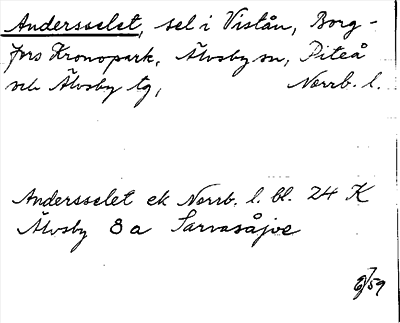 Andersselet, sel i Vistån, Borg-
fors Kronopark, Älvsby sn, Piteå
och Älvsby tg, Norrb. l.
Andersselet ek Norrb. l. bl. 24 K
Älvsby 8a Sarvasåjve